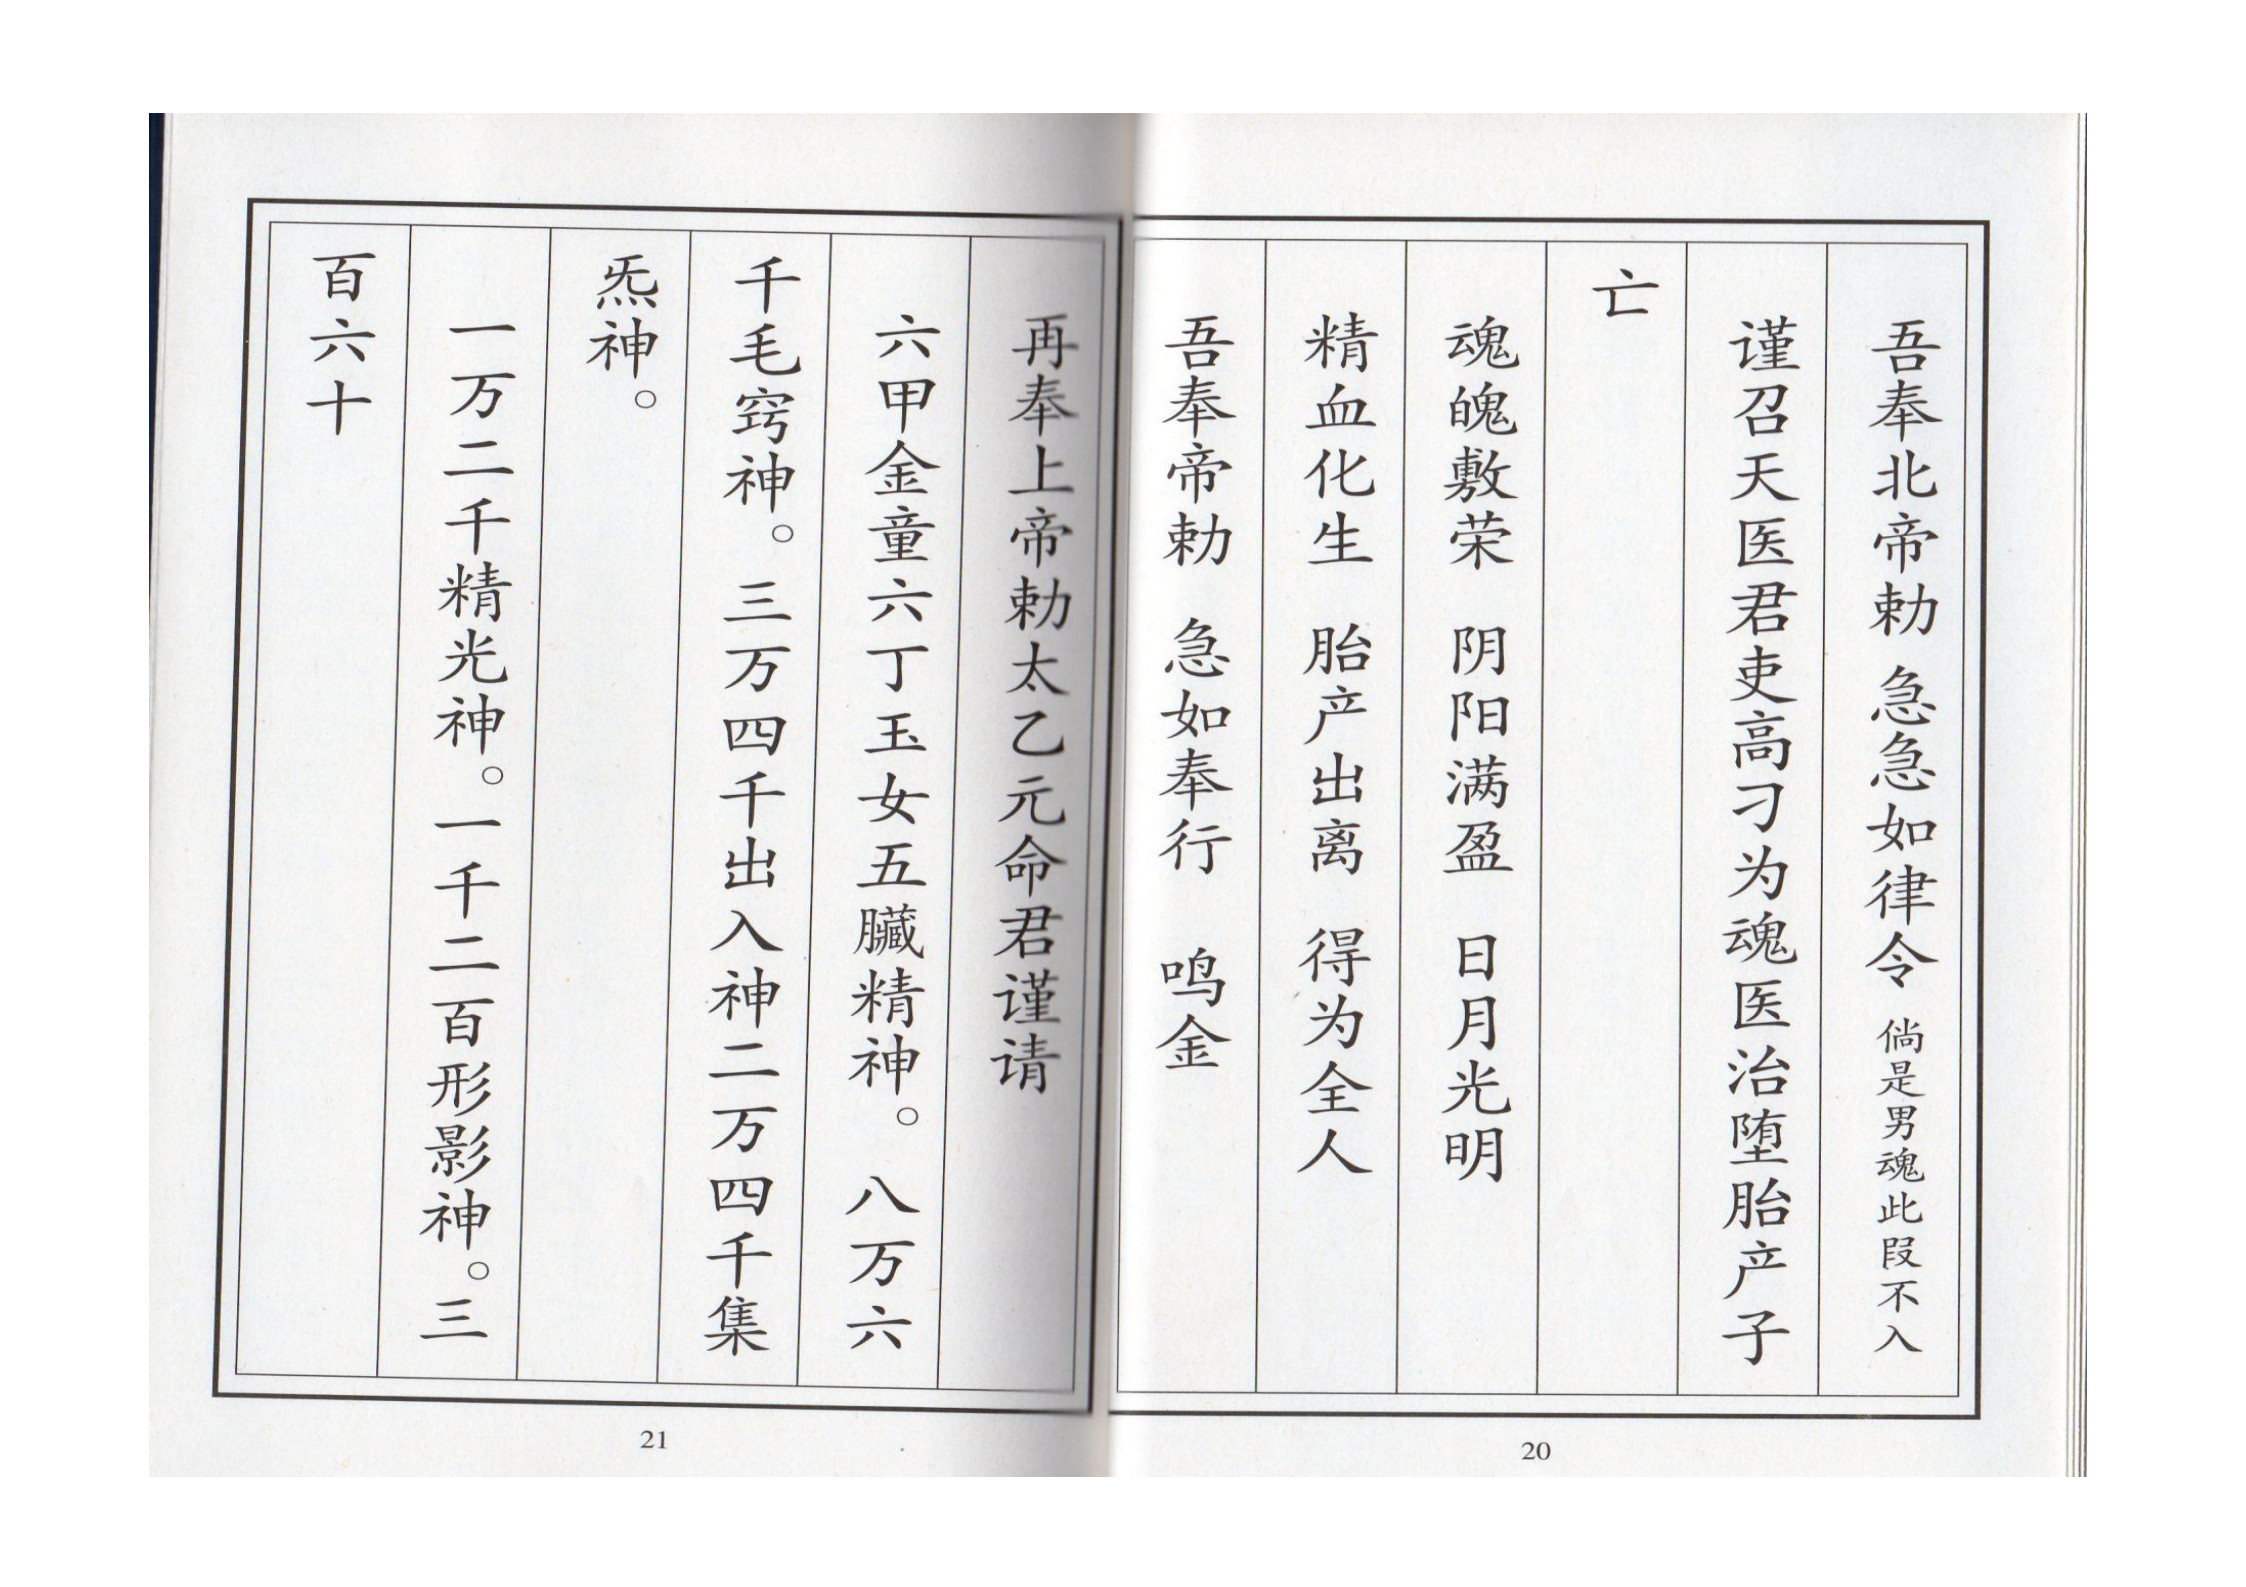 吾奉北帝勅 急急如律令 倘是男魂此段不入
谨召天医君吏高刁为魂医治堕胎产子
亡
魂魄敷荣 阴阳满盈 日月光明
精血化生 胎产出离 得为全人
吾奉帝勅 急如奉行 鸣金
20
再奉上帝勅太乙元命君谨请
六甲金童六丁玉女五臟精神。八万六
千毛窍神。三万四千出入神二万四千集
炁神。
一万二千精光神。一千二百形影神。三
百六十
21